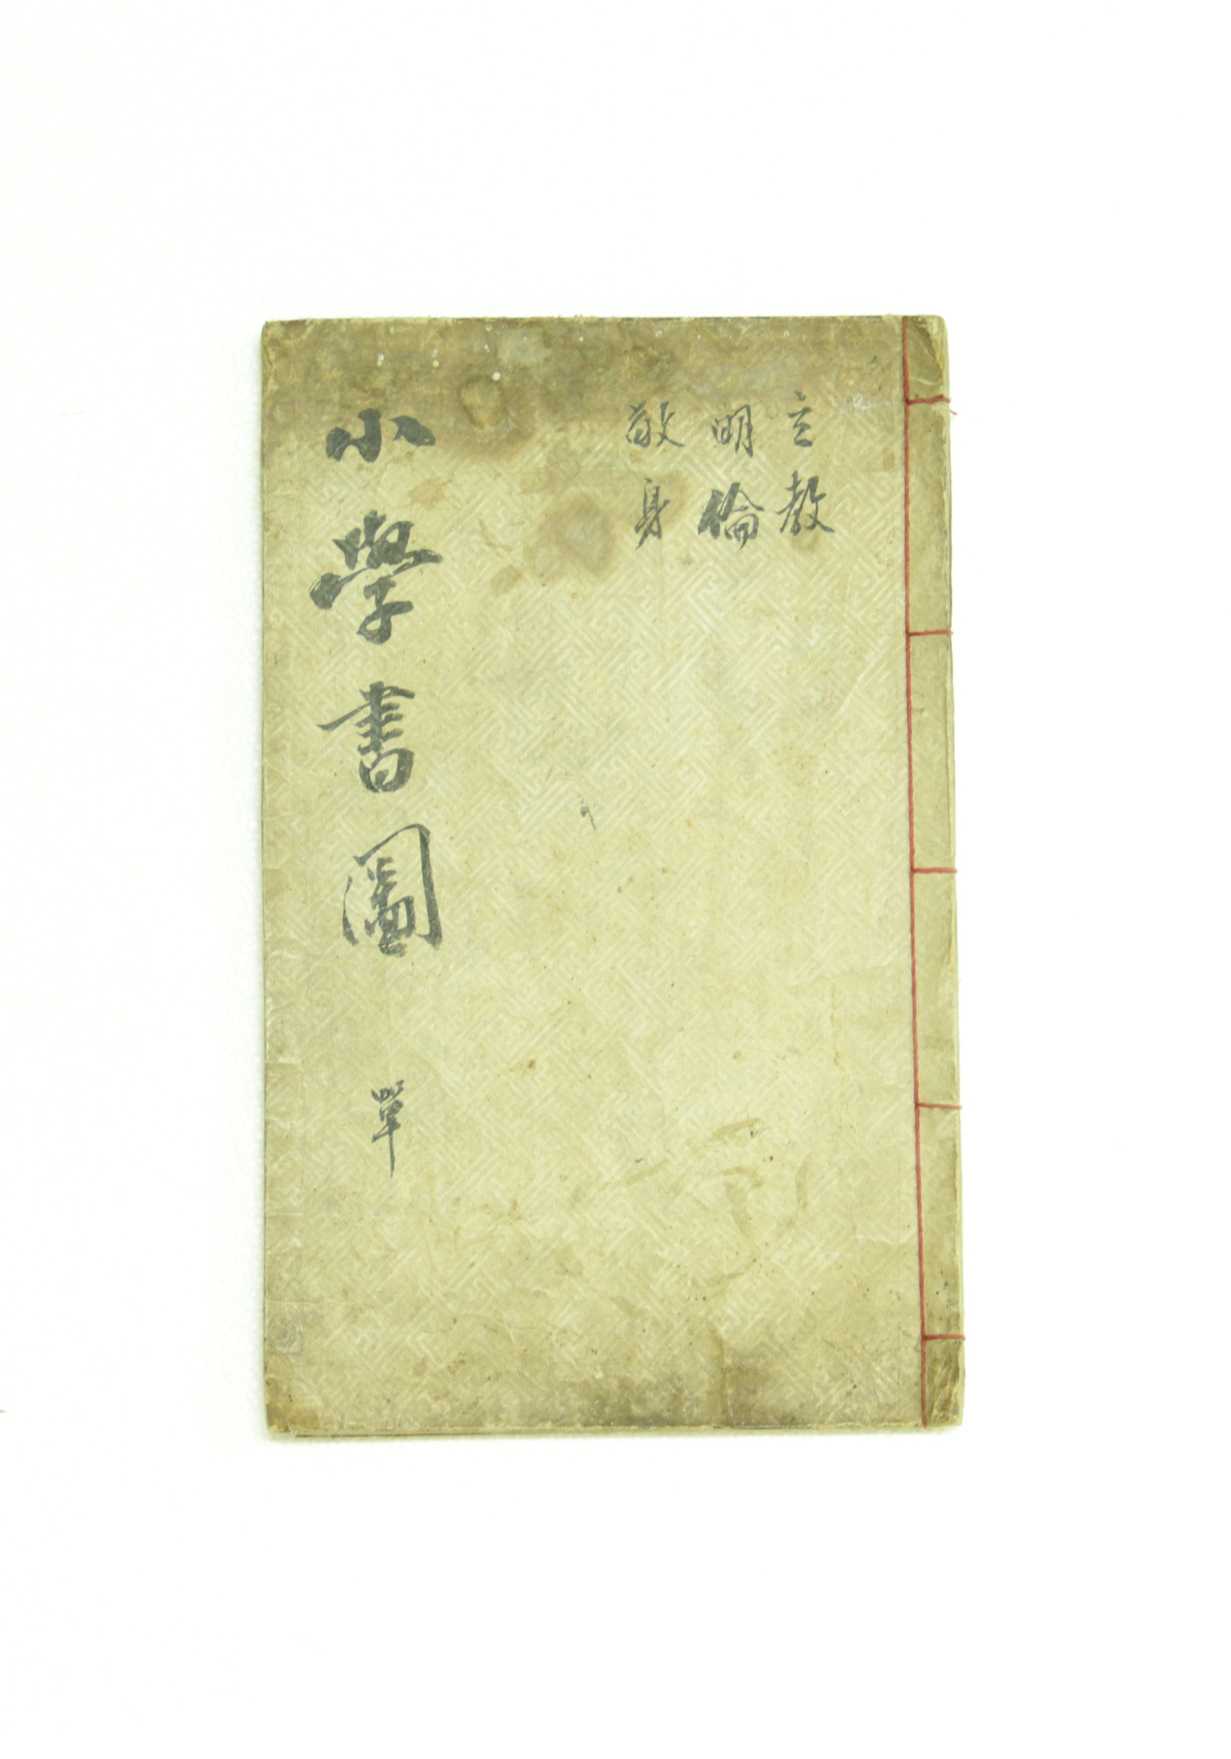 立教
明倫
敬身
小學書圖 單